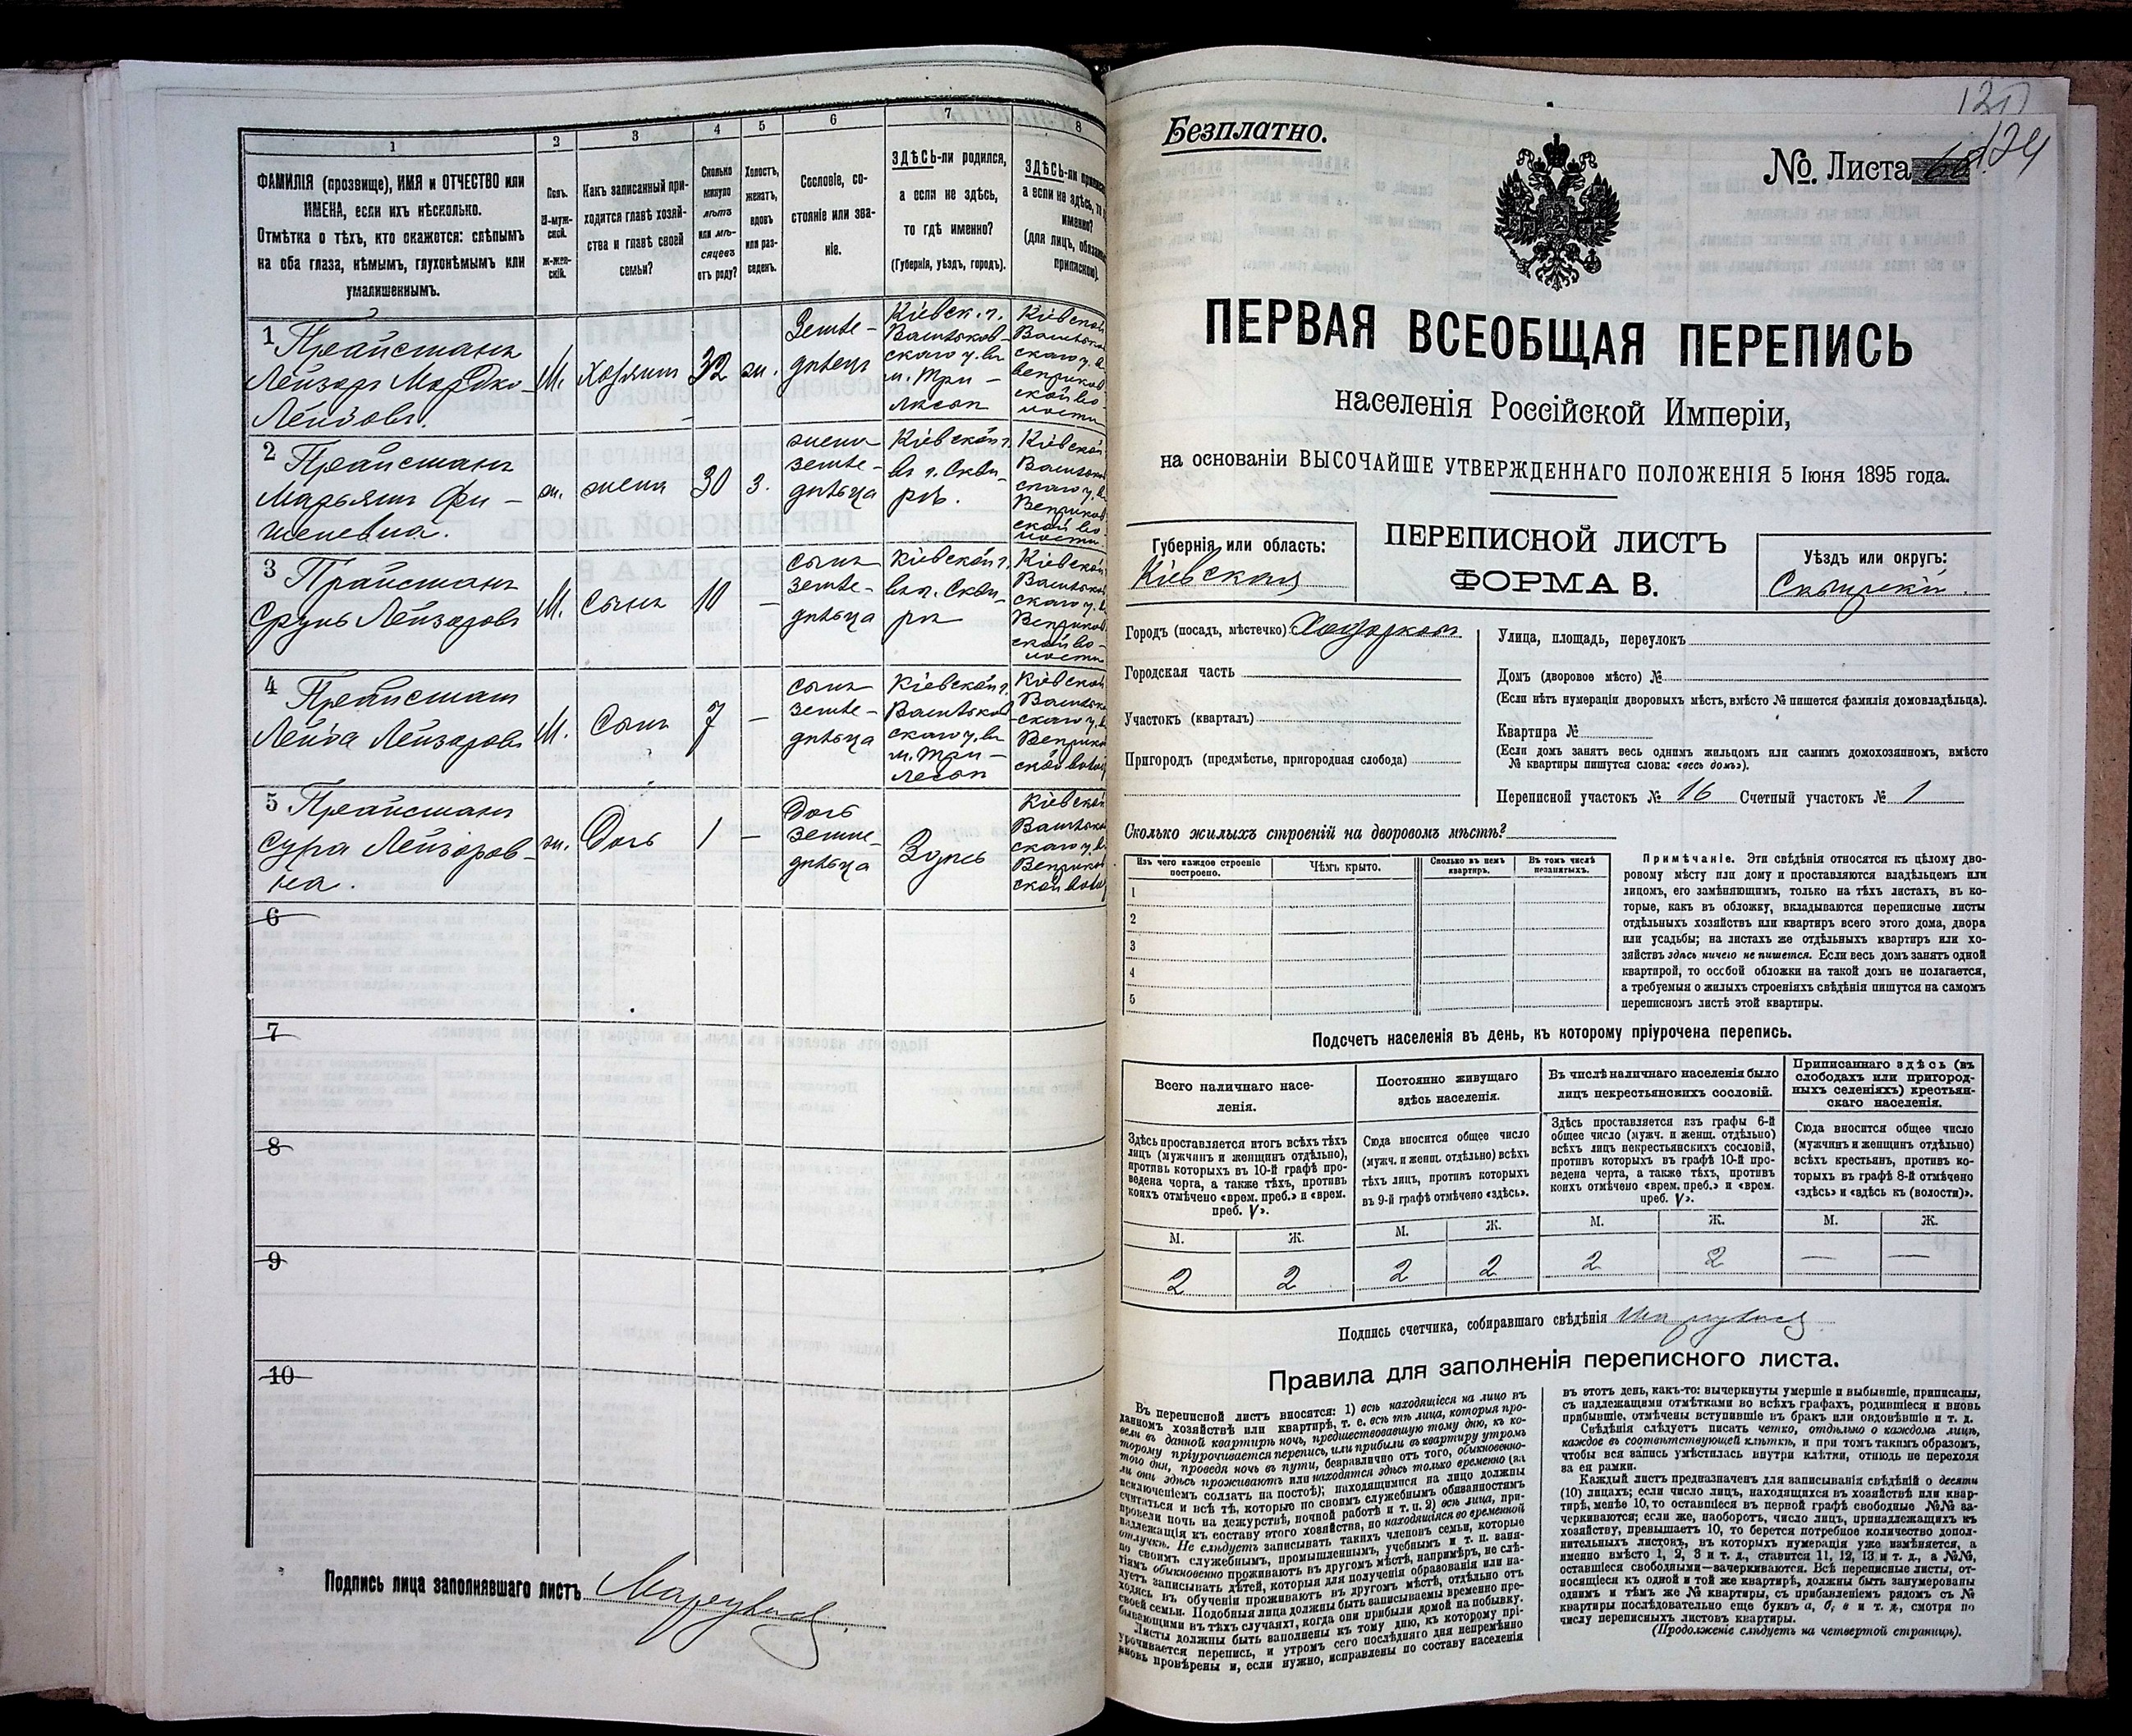 1
2
3
4
5
6
7
8
ФАМИЛІЯ (прозвище), ИМЯ и ОТЧЕСТВО или
ИМЕНА, если ихъ нѣсколько.
Отмѣтка о тѣхъ, кто окажется: слѣпымъ
на оба глаза, нѣмымъ, глухонѣмымъ или
умалишеннымъ.
Полъ.
М-муж-
ской.
ж-жен-
скій.
Какъ записанный при-
ходится главѣ хозяй-
ства и главѣ своей
семьи?
Сколько
минуло
лѣтъ
или мѣ-
сяцевъ
отъ роду?
Холостъ,
женатъ,
вдовъ
или раз-
веденъ.
Сословіе, со-
стояніе или зва-
ніе.
ЗДѢСЬ-ли родился,
а если не здѣсь,
то гдѣ именно?
(Губернія, уѣздъ, городъ).
ЗДѢСЬ-ли
а если не здѣсь, то
именно?
(для лицъ,
припискою).
1 Прайсманъ
Лейзоръ Мордко-
Лейбовъ.
М.
Хозяинъ
32
ж.
Земле-
дѣлецъ
Кіевск. г.
Васильков-
скаго у. въ
м. Три-
лѣсах
2 Прайсманъ
Марьямъ Фи-
шелевна.
ж.
жена
30
з.
жена
земле-
дѣльца
Кіевской г.
въ г. Скви-
рѣ.
3 Прайсманъ
Сруль Лейзоровъ
М.
Сынъ
10
—
сынъ
земле-
дѣльца
Кіевской г.
въ г. Скви-
рѣ
4 Прайсман
Лейба Лейзоровъ
М.
Сынъ
7
—
сынъ
земле-
дѣльца
Кіевской г.
Васильков-
скаго у. въ
м. Три-
лесах
5 Прайсманъ
Сура Лейзоров-
на.
ж.
Дочь
1
—
Дочь
земле-
дѣльца
Здѣсь
6
7
8
9
10
Подпись лица заполнявшаго листъ
Безплатно.
120
№. Листа 124
ПЕРВАЯ ВСЕОБЩАЯ ПЕРЕПИСЬ
населенія Россійской Имперіи,
на основаніи ВЫСОЧАЙШЕ УТВЕРЖДЕННАГО ПОЛОЖЕНІЯ 5 Іюня 1895 года.
Губернія или область:
Кіевская
ПЕРЕПИСНОЙ ЛИСТЪ
ФОРМА В.
Уѣздъ или округъ:
Сквирскій.
Городъ (посадъ, мѣстечко) Ходорков
Городская часть
Участокъ (кварталъ)
Пригородъ (предмѣстье, пригородная слобода)
Улица, площадь, переулокъ
Домъ (дворовое мѣсто) №
(Если нѣтъ нумераціи дворовыхъ мѣстъ, вмѣсто № пишется фамилія домовладѣльца).
Квартира №
(Если домъ занятъ весь однимъ жильцомъ или самимъ домохозяиномъ, вмѣсто
№ квартиры пишутся слова: «весь домъ»).
Переписной участокъ № 16 Счетный участокъ № 1
Сколько жилыхъ строеній на дворовомъ мѣстѣ?
Изъ чего каждое строеніе
построено.
Чѣмъ крыто.
Сколько въ немъ
квартиръ.
Въ томъ числѣ
незанятыхъ.
1
2
3
4
5
Примѣчаніе. Эти свѣдѣнія относятся къ цѣлому дво-
ровому мѣсту или дому и проставляются владѣльцемъ или
лицомъ, его замѣняющимъ, только на тѣхъ листахъ, въ ко-
торые, какъ въ обложку, вкладываются переписные листы
отдѣльныхъ хозяйствъ или квартиръ всего этого дома, двора
или усадьбы; на листахъ же отдѣльныхъ квартиръ или хо-
зяйствъ здѣсь ничего не пишется. Если весь домъ занятъ одной
квартирой, то особой обложки на такой домъ не полагается,
а требуемыя о жилыхъ строеніяхъ свѣдѣнія пишутся на самомъ
переписномъ листѣ этой квартиры.
Подсчетъ населенія въ день, къ которому пріурочена перепись.
Всего наличнаго насе-
ленія.
Постоянно живущаго
здѣсь населенія.
Въ числѣ наличнаго населенія было
лицъ некрестьянскихъ сословій.
Приписаннаго здѣсь (въ
слободахъ или пригород-
ныхъ селеніяхъ) крестьян-
скаго населенія.
Здѣсь проставляется итогъ всѣхъ тѣхъ
лицъ (мужчинъ и женщинъ отдѣльно),
противъ которыхъ въ 10-й графѣ про-
ведена черта, а также тѣхъ, противъ
коихъ отмѣчено «врем. преб.» и «врем.
преб. V».
Сюда вносится общее число
(мужч. и женщ. отдѣльно) всѣхъ
тѣхъ лицъ, противъ которыхъ
въ 9-й графѣ отмѣчено «здѣсь».
Здѣсь проставляется изъ графы 6-й
общее число (мужч. и женщ. отдѣльно)
всѣхъ лицъ некрестьянскихъ сословій,
противъ которыхъ въ графѣ 10-й про-
ведена черта, а также тѣхъ, противъ
коихъ отмѣчено «врем. преб.» и «врем.
преб. V».
Сюда вносится общее число
(мужчинъ и женщинъ отдѣльно)
всѣхъ крестьянъ, противъ ко-
торыхъ въ графѣ 8-й отмѣчено
«здѣсь» и «здѣсь къ (волости)».
М. Ж. М. Ж. М. Ж. М. Ж.
2 2 2 2 2 2 — —
Подпись счетчика, собиравшаго свѣдѣнія
Правила для заполненія переписного листа.
Въ переписной листъ вносятся: 1) всѣ находящіеся на лицо въ
данномъ хозяйствѣ или квартирѣ, т. е. всѣ тѣ лица, которыя про-
вели въ данной квартирѣ ночь, предшествовавшую тому дню, къ ко-
торому пріурочивается перепись, или прибыли въ квартиру утромъ
того дня, проведя ночь въ пути, безразлично отъ того, обыкновенно-
ли они здѣсь проживаютъ или находятся здѣсь только временно (за
исключеніемъ солдатъ на постоѣ); находящимися на лицо должны
считаться и всѣ тѣ, которые по своимъ служебнымъ обязанностямъ
провели ночь на дежурствѣ, ночной работѣ и т. п. 2) всѣ лица, при-
надлежащія къ составу этого хозяйства, но находящіяся во временной
отлучкѣ. Не слѣдуетъ записывать такихъ членовъ семьи, которые
по своимъ служебнымъ, промышленнымъ, учебнымъ и т. п. заня-
тіямъ обыкновенно проживаютъ въ другомъ мѣстѣ, напримѣръ, не слѣ-
дуетъ записывать дѣтей, которыя для полученія образованія или на-
ходясь въ обученіи проживаютъ въ другомъ мѣстѣ, отдѣльно отъ
своей семьи. Подобныя лица должны быть записываемы временно пре-
бывающими въ тѣхъ случаяхъ, когда они прибыли домой на побывку.
Листы должны быть заполнены къ тому дню, къ которому прі-
урочивается перепись, и утромъ сего послѣдняго дня непремѣнно
вновь провѣрены и, если нужно, исправлены по составу населенія
въ этотъ день, какъ-то: вычеркнуты умершіе и выбывшіе, приписаны,
съ надлежащими отмѣтками во всѣхъ графахъ, родившіеся и вновь
прибывшіе, отмѣчены вступившіе въ бракъ или овдовѣвшіе и т. д.
Свѣдѣнія слѣдуетъ писать четко, отдѣльно о каждомъ лицѣ,
каждое въ соотвѣтствующей клѣткѣ, и при томъ такимъ образомъ,
чтобы вся запись умѣстилась внутри клѣтки, отнюдь не переходя
за ея рамки.
Каждый листъ предназначенъ для записыванія свѣдѣній о десяти
(10) лицахъ; если число лицъ, находящихся въ хозяйствѣ или квар-
тирѣ, менѣе 10, то оставшіеся въ первой графѣ свободные №№ за-
черкиваются; если же, наоборотъ, число лицъ, принадлежащихъ къ
хозяйству, превышаетъ 10, то берется потребное количество допол-
нительныхъ листовъ, въ которыхъ нумерація уже измѣняется, а
именно вмѣсто 1, 2, 3 и т. д., ставится 11, 12, 13 и т. д., а №№,
оставшіеся свободными—зачеркиваются. Всѣ переписные листы, от-
носящіеся къ одной и той же квартирѣ, должны быть занумерованы
однимъ и тѣмъ же № квартиры, съ прибавленіемъ рядомъ съ №
квартиры послѣдовательно еще буквъ а, б, в и т. д., смотря по
числу переписныхъ листовъ квартиры.
(Продолженіе слѣдуетъ на четвертой страницѣ).